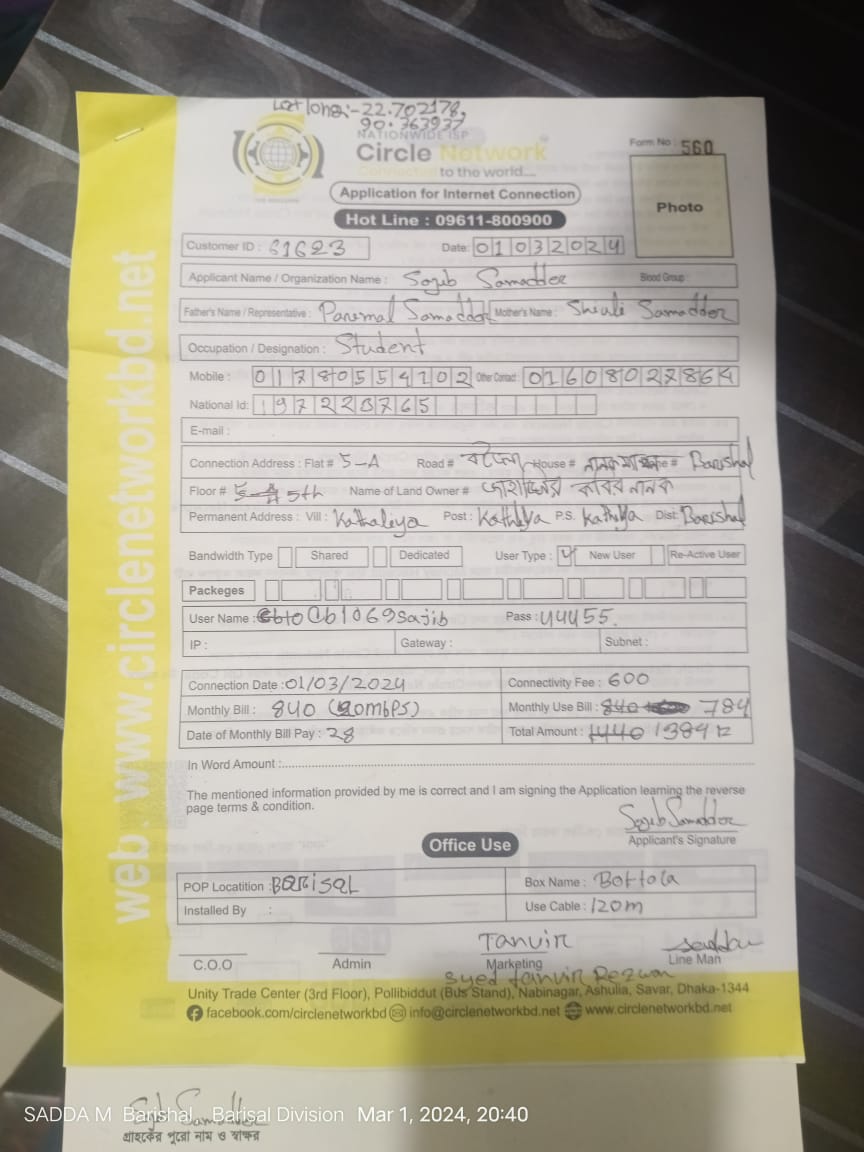 Lat long:- 22.702178,
90.363937
NATIONWIDE ISP
Circle Network
Connected to the world....
Form No : 560
Application for Internet Connection
Photo
Hot Line : 09611-800900
Customer ID : 61623 Date: 01032024
Applicant Name / Organization Name : Sojib Samadder Blood Group :
Father's Name / Representative : Paremal Samadder Mother's Name : Shiuli Samadder
Occupation / Designation : Student
Mobile : 01780554202 Other Contact : 01608027864
National Id:
E-mail :
Connection Address : Flat # 5-A Road # House # Barishal
Floor # 5th Name of Land Owner # কবির নানক
Permanent Address : Vill : Kathaliya Post : Kathliya P.S. Kathliya Dist: Barishal
Bandwidth Type Shared Dedicated User Type : New User Re-Active User
Packeges
User Name : Pass : 4455.
IP : Gateway : Subnet :
Connection Date : 01/03/2024 Connectivity Fee : 600
Monthly Bill : 840 (20mbps) Monthly Use Bill : 840 784
Date of Monthly Bill Pay : 28 Total Amount : 1440 1384
In Word Amount :
The mentioned information provided by me is correct and I am signing the Application learning the reverse
page terms & condition.
Sojib Samadder
Applicant's Signature
Office Use
POP Locatition : BARISAL Box Name : Bottola
Installed By : Use Cable : 120m
Tanvir
C.O.O Admin Marketing Line Man
Syed Tanvir Rezwan
Unity Trade Center (3rd Floor), Pollibiddut (Bus Stand), Nabinagar, Ashulia, Savar, Dhaka-1344
facebook.com/circlenetworkbd info@circlenetworkbd.net www.circlenetworkbd.net
web : www.circlenetworkbd.net
Sojib Samadder
SADDA M Barishal, Barisal Division Mar 1, 2024, 20:40
গ্রাহকের পুরো নাম ও স্বাক্ষর